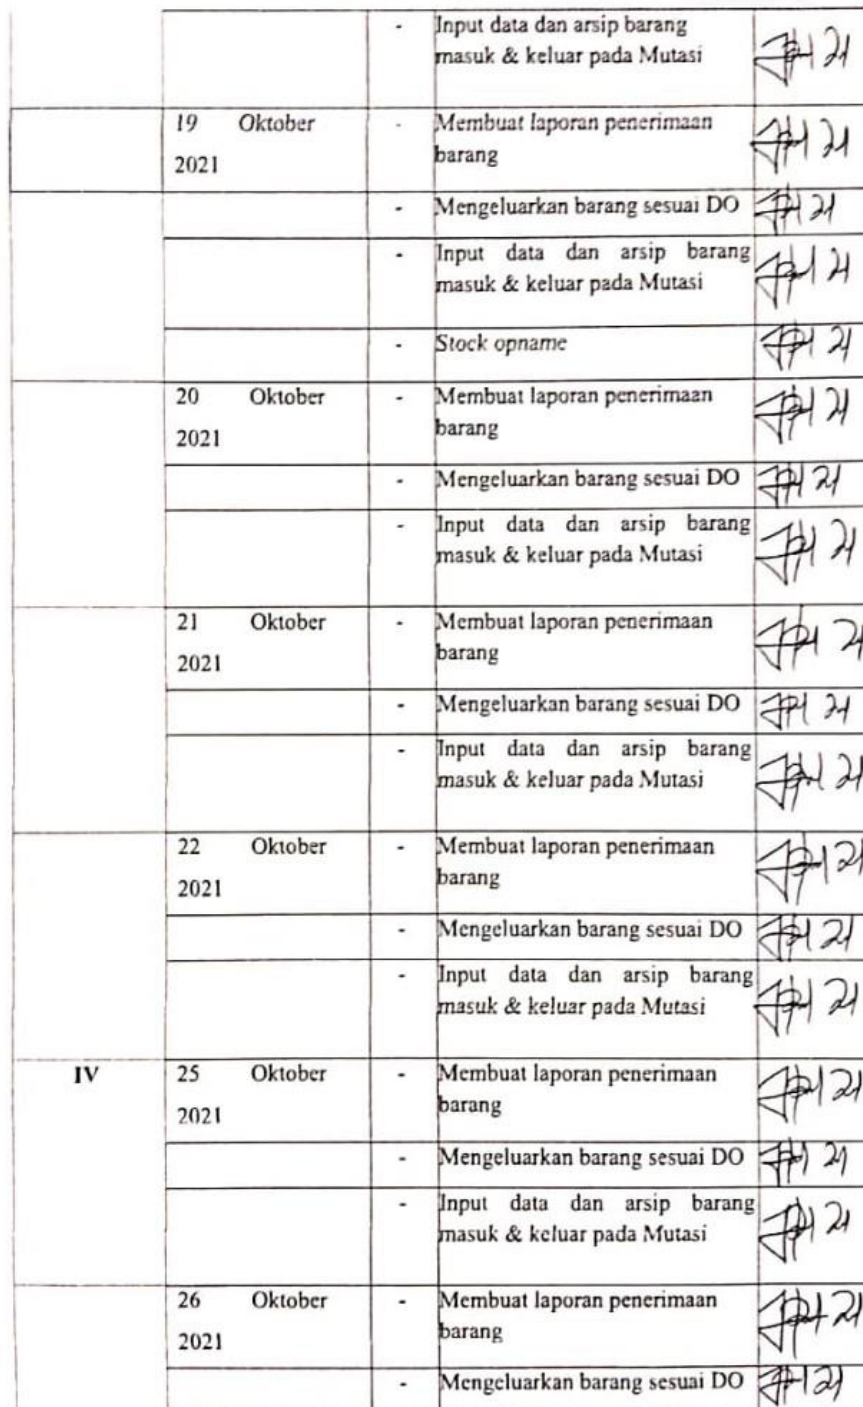 - Input data dan arsip barang
masuk & keluar pada Mutasi
19 Oktober - Membuat laporan penerimaan
2021 barang
- Mengeluarkan barang sesuai DO
- Input data dan arsip barang
masuk & keluar pada Mutasi
- Stock opname
20 Oktober - Membuat laporan penerimaan
2021 barang
- Mengeluarkan barang sesuai DO
- Input data dan arsip barang
masuk & keluar pada Mutasi
21 Oktober - Membuat laporan penerimaan
2021 barang
- Mengeluarkan barang sesuai DO
- Input data dan arsip barang
masuk & keluar pada Mutasi
22 Oktober - Membuat laporan penerimaan
2021 barang
- Mengeluarkan barang sesuai DO
- Input data dan arsip barang
masuk & keluar pada Mutasi
IV 25 Oktober - Membuat laporan penerimaan
2021 barang
- Mengeluarkan barang sesuai DO
- Input data dan arsip barang
masuk & keluar pada Mutasi
26 Oktober - Membuat laporan penerimaan
2021 barang
- Mengeluarkan barang sesuai DO